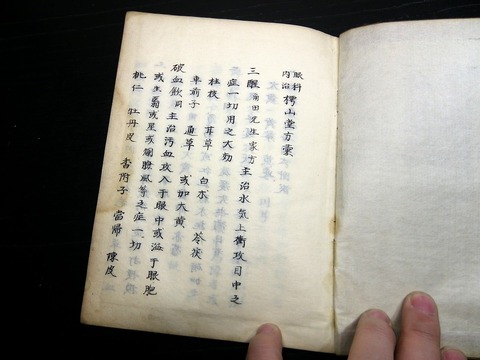 眼科
内治 樗山堂方彙
三醒 前田先生家方 主治水気上衝攻目中之
症一切用之大効
桂枝 耳草 白朮 苓茯
車前子 通草 或加大黄
破血飲 同 主治汚血攻入于眼中或溢于眼胞
或生翳或星或爛瞼風等之症一切
桃仁 牡丹皮 香附子 當帰 陳皮